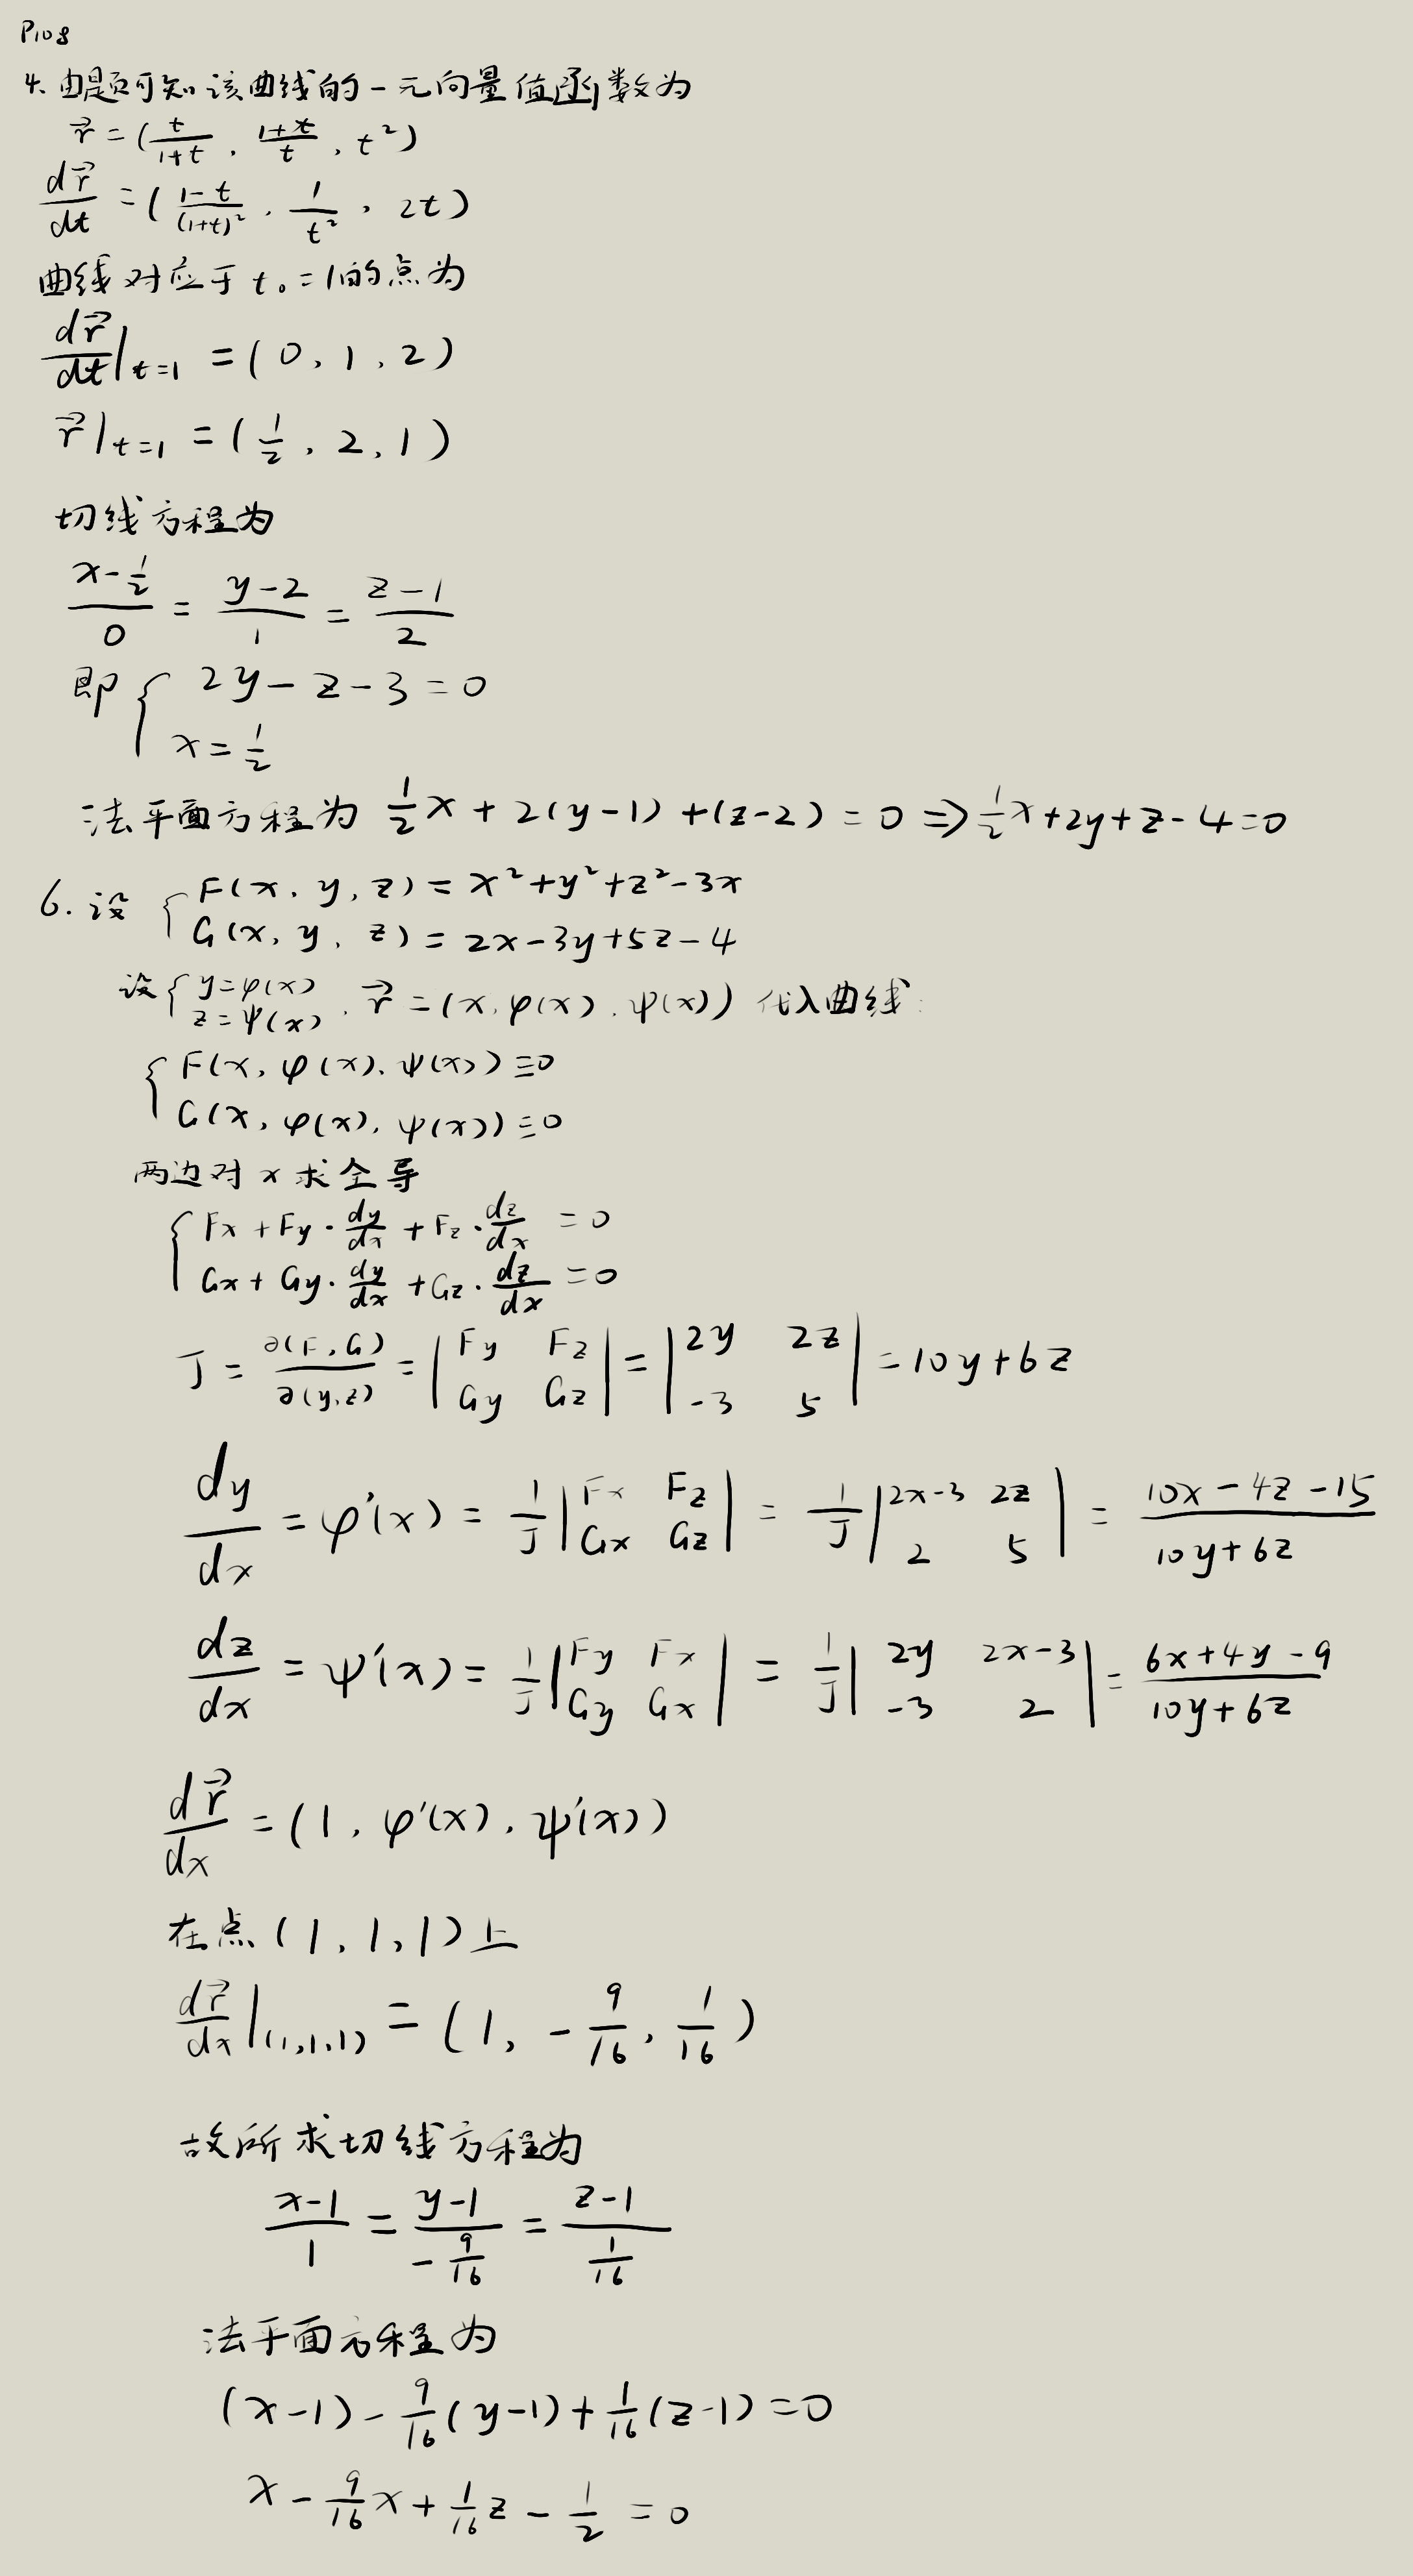 P108
4. 由题可知该曲线的一元向量值函数为
r⃗ = (t/(1+t), (1+t)/t, t²)
dr⃗/dt = ((1-t)/(1+t)², 1/t², 2t)
曲线对应于 t₀=1的点为
dr⃗/dt|t=1 = (0, 1, 2)
r⃗|t=1 = (1/2, 2, 1)
切线方程为
(x-1/2)/0 = (y-2)/1 = (z-1)/2
即 { 2y-z-3=0
x=1/2
法平面方程为 1/2x+2(y-1)+(z-2)=0 ⇒ 1/2x+2y+z-4=0
6. 设 { F(x, y, z) = x²+y²+z²-3x
G(x, y, z) = 2x-3y+5z-4
设 { y=φ(x)
z=ψ(x) , r⃗ = (x, φ(x), ψ(x)) 代入曲线:
{ F(x, φ(x), ψ(x)) ≡0
G(x, φ(x), ψ(x)) ≡0
两边对 x 求全导
{ Fx + Fy · dy/dx + Fz · dz/dx = 0
Gx + Gy · dy/dx + Gz · dz/dx = 0
J = ∂(F,G)/∂(y,z) = |Fy Fz; Gy Gz| = |2y 2z; -3 5| = 10y+6z
dy/dx = φ'(x) = 1/J |Fx Fz; Gx Gz| = 1/J |2x-3 2z; 2 5| = (10x-4z-15)/(10y+6z)
dz/dx = ψ'(x) = 1/J |Fy Fx; Gy Gx| = 1/J |2y 2x-3; -3 2| = (6x+4y-9)/(10y+6z)
dr⃗/dx = (1, φ'(x), ψ'(x))
在点(1,1,1)上
dr⃗/dx|(1,1,1) = (1, -9/16, 1/16)
故所求切线方程为
(x-1)/1 = (y-1)/(-9/16) = (z-1)/(1/16)
法平面方程为
(x-1) - 9/16(y-1) + 1/16(z-1) = 0
x - 9/16x + 1/16z - 1/2 = 0